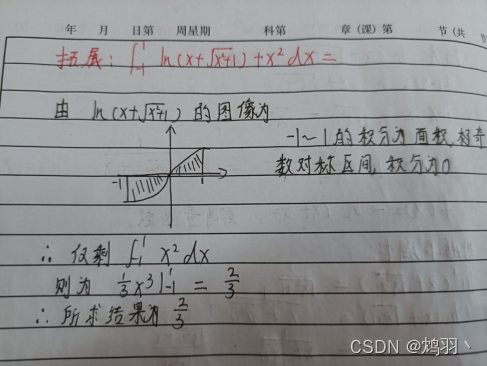 年 月 日第 周星期 科第 章(课)第 节(共
拓展: ∫₋₁¹ ln(x+√x²+1)+x² dx=
由 ln(x+√x²+1) 的图像为
-1~1的积分为面积,
数对称区间,积分为0
-1 1
∴ 仅剩 ∫₋₁¹ x² dx
则为 ⅓x³|₋₁¹ = ⅔
∴ 所求结果为 ⅔
CSDN @鸩羽丶